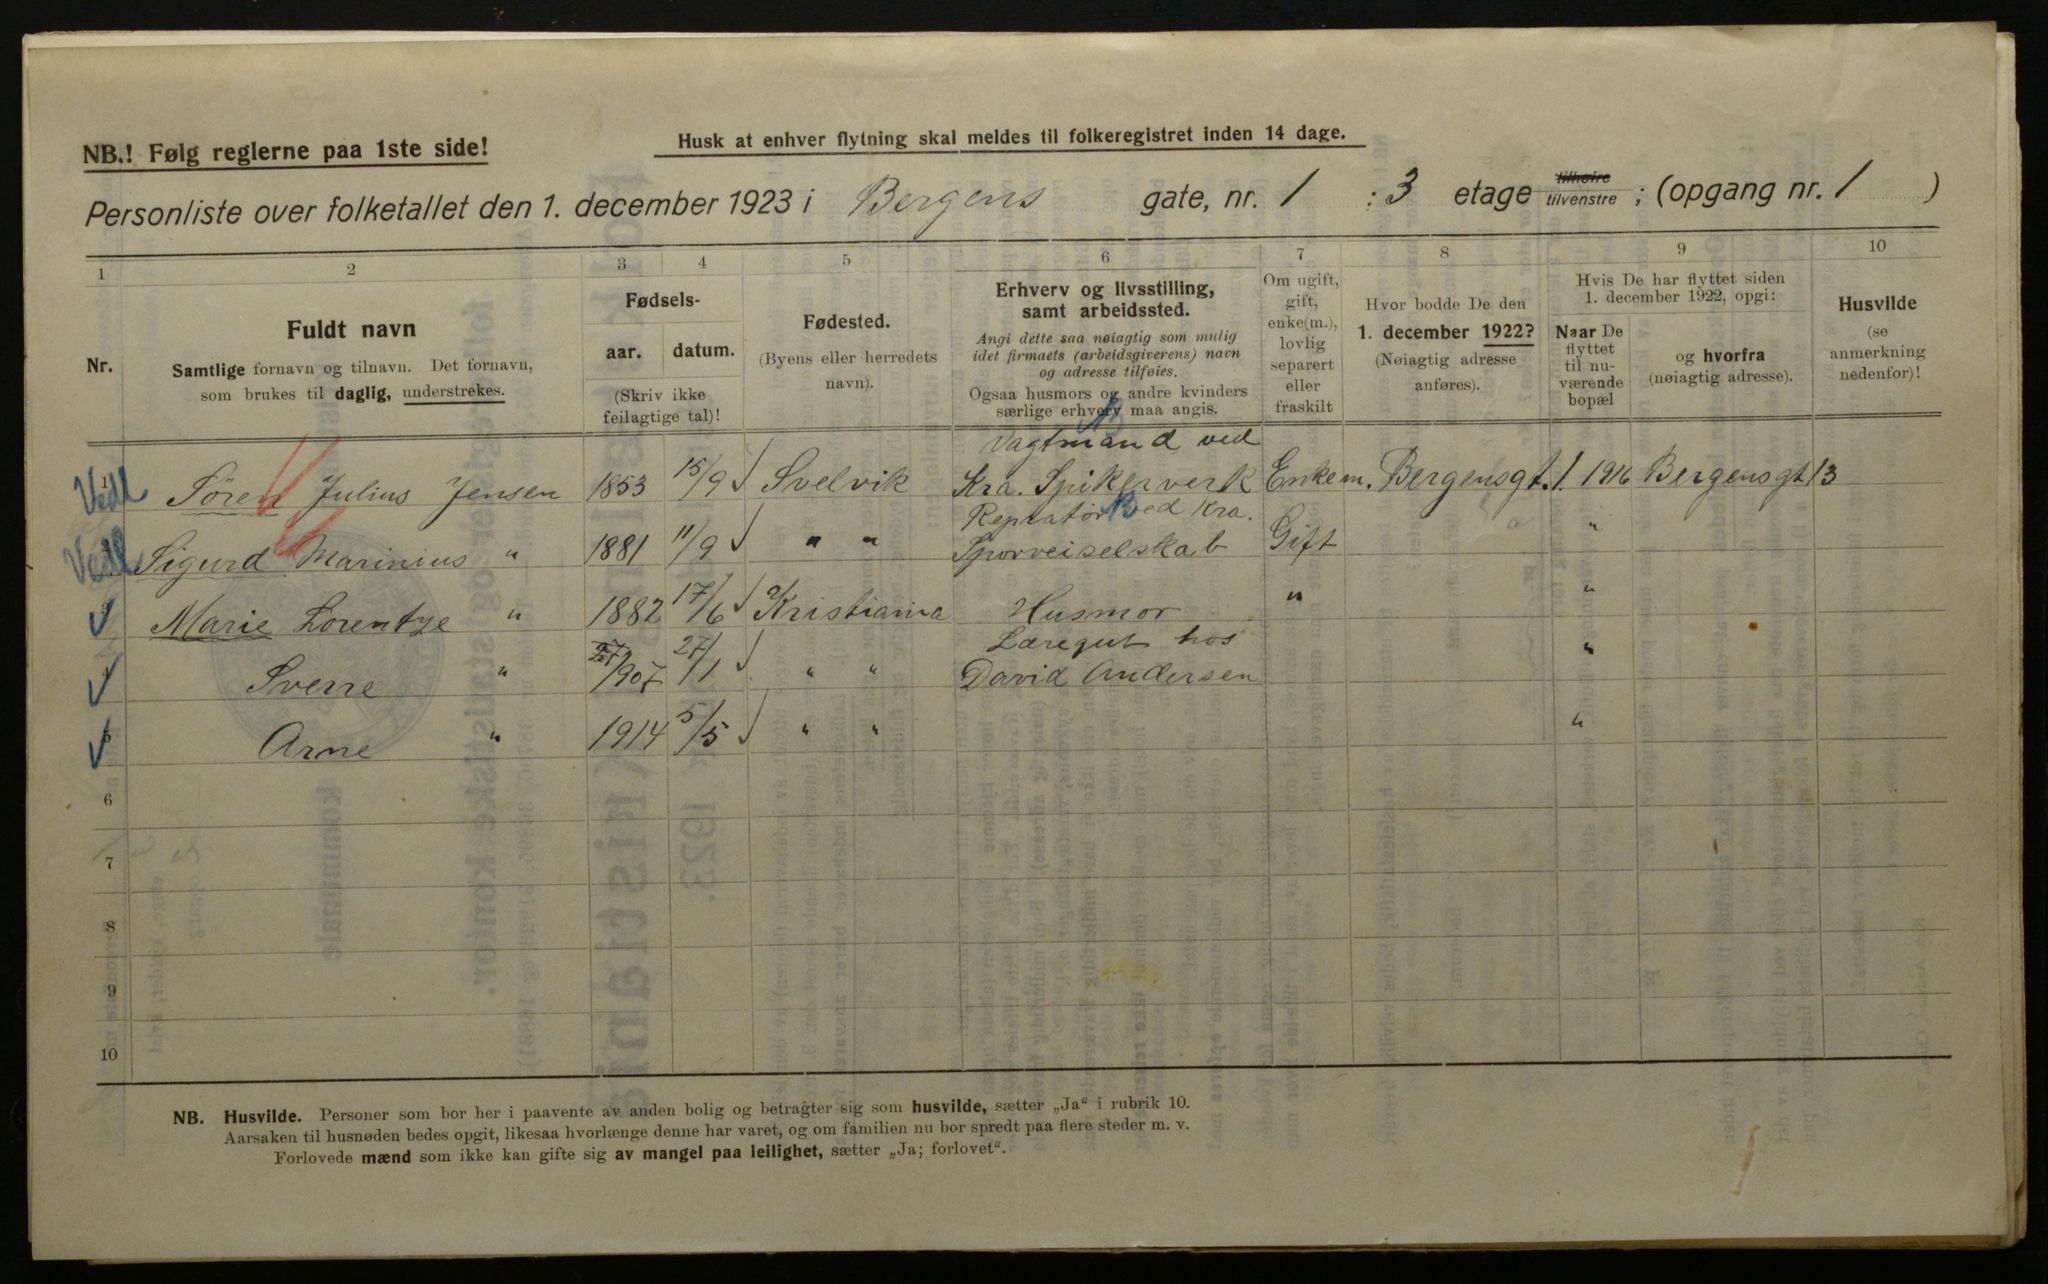 NB.! Følg reglerne paa 1ste side!
Husk at enhver flytning skal meldes til folkeregistret inden 14 dage.
Personliste over folketallet den 1. december 1923 i Bergens gate, nr. 1 : 3 etage tilhøire tilvenstre ; (opgang nr. 1 )
1 2 3 4 5 6 7 8 9 10
Nr.
Fuldt navn
Samtlige fornavn og tilnavn. Det fornavn,
som brukes til daglig, understrekes.
Fødsels-
aar. datum.
(Skriv ikke
feilagtige tal)!
Fødested.
(Byens eller herredets
navn).
Erhverv og livsstilling,
samt arbeidssted.
Angi dette saa nøiagtig som mulig
idet firmaets (arbeidsgiverens) navn
og adresse tilføies.
Ogsaa husmors og andre kvinders
særlige erhverv maa angis.
Om ugift,
gift,
enke(m.),
lovlig
separert
eller
fraskilt
Hvor bodde De den
1. december 1922?
(Nøiagtig adresse
anføres).
Hvis De har flyttet siden
1. december 1922, opgi:
Naar De
flyttet
til nu-
værende
bopæl
og hvorfra
(nøiagtig adresse).
Husvilde
(se
anmerkning
nedenfor)!
Vagtmand ved
Vedl 1 Søren Julius Jensen 1853 15/9 Svelvik Kra. Spikerverk Enkem. Bergensgt. 1. 1916 Bergensgt 13
Repratør ved Kra.
Vedl Sigurd Marinius " 1881 11/9 " " Sporveiselskab Gift "
Marie Lorentze " 1882 17/6 Kristiania Husmor " "
Læregut hos
Sverre " 1907 27/1 " " David Andersen "
5 Arne " 1914 5/5 " " "
6
7
8
9
10
NB. Husvilde. Personer som bor her i paavente av anden bolig og betragter sig som husvilde, sætter „Ja“ i rubrik 10.
Aarsaken til husnøden bedes opgit, likesaa hvorlænge denne har varet, og om familien nu bor spredt paa flere steder m. v.
Forlovede mænd som ikke kan gifte sig av mangel paa leilighet, sætter „Ja; forlovet“.